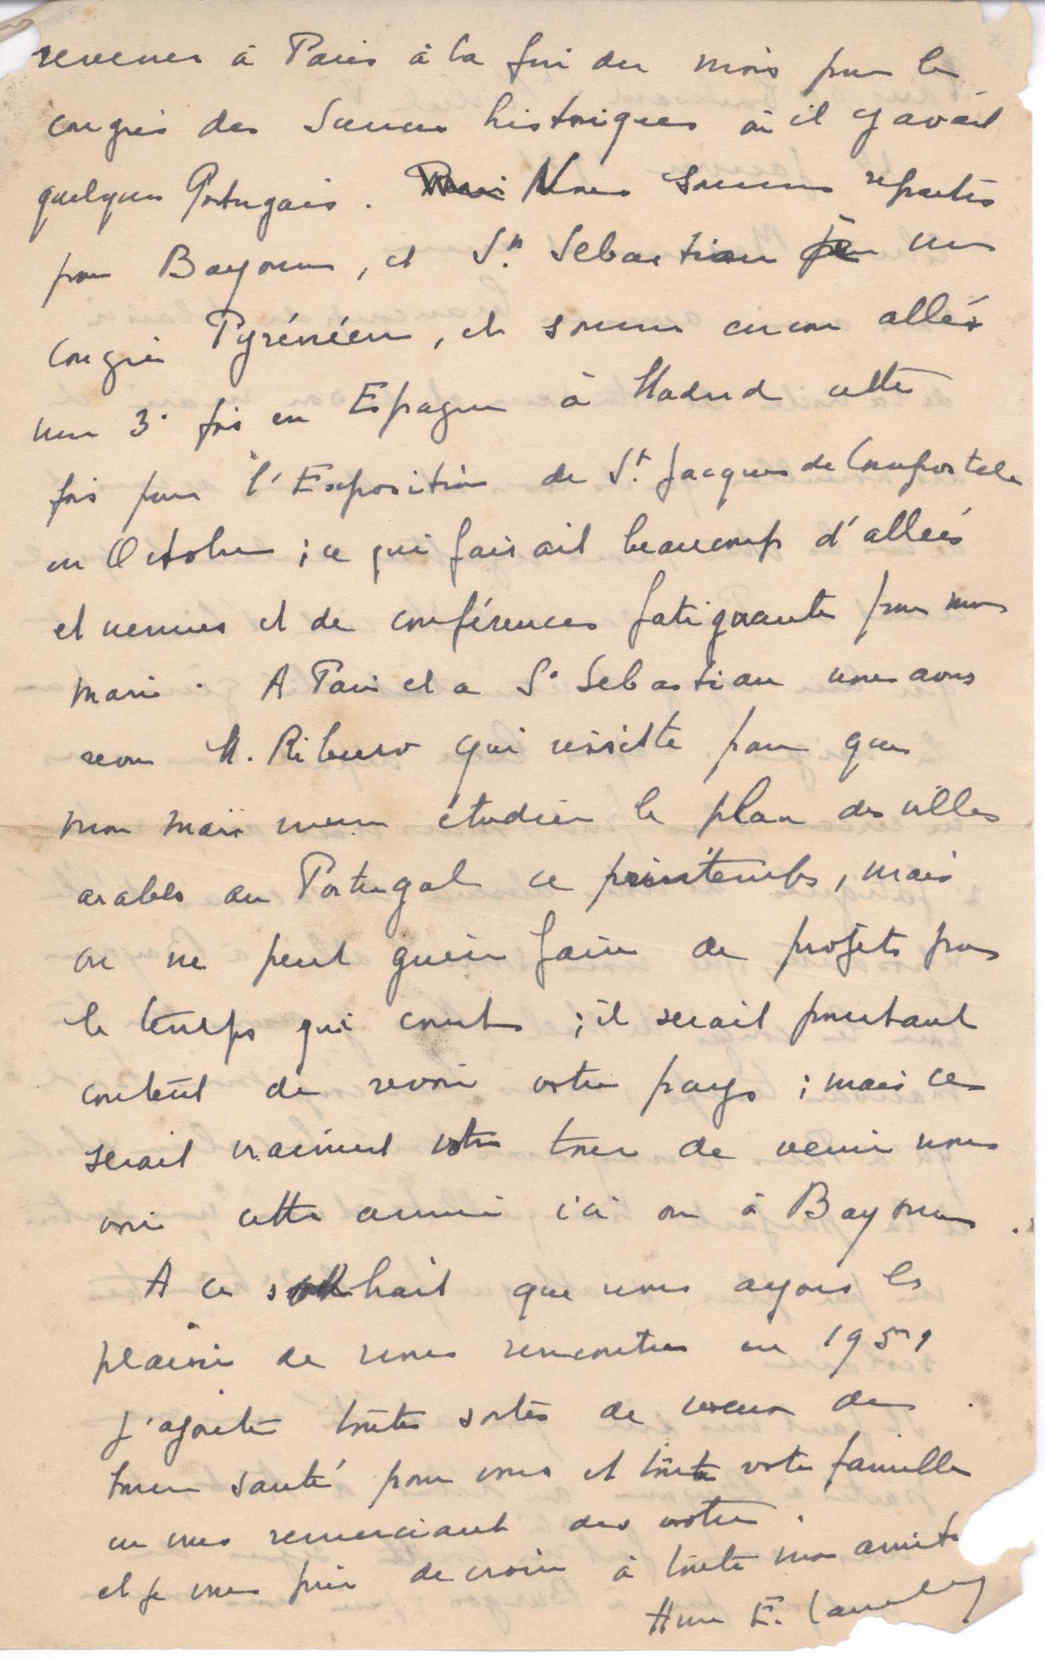 revenus à Paris à la fin du mois pour le
congrès des Sciences historiques où il y avait
quelques Portugais. Nous sommes repartis
pour Bayonne, et Sn Sebastian un
Congrès Pyrénéen, et sommes encore allés
une 3e fois en Espagne à Madrid cette
fois pour l'Exposition de St Jacques de Compostela
en Octobre ; ce qui faisait beaucoup d'allées
et venues et de conférences fatigante pour mon
mari. A Paris et a Sn Sebastian nous avons
revu M. Ribeiro qui insiste pour que
mon mari vienne étudier le plan des villes
arabes au Portugal ce printemps, mais
on ne peut guère faire de projets par
le temps qui court ; il serait pourtant
content de revoir votre pays ; mais ce
serait vraiment votre tour de venir nous
voir cette année ici ou à Bayonne.
A ce souhait que nous ayons le
plaisir de nous rencontrer en 1951
j'ajoute toutes sortes de voeux de
bonne santé pour vous et toute votre famille
en vous remerciant des votres.
et je vous prie de croire à toute mon amitié
E. Lambert